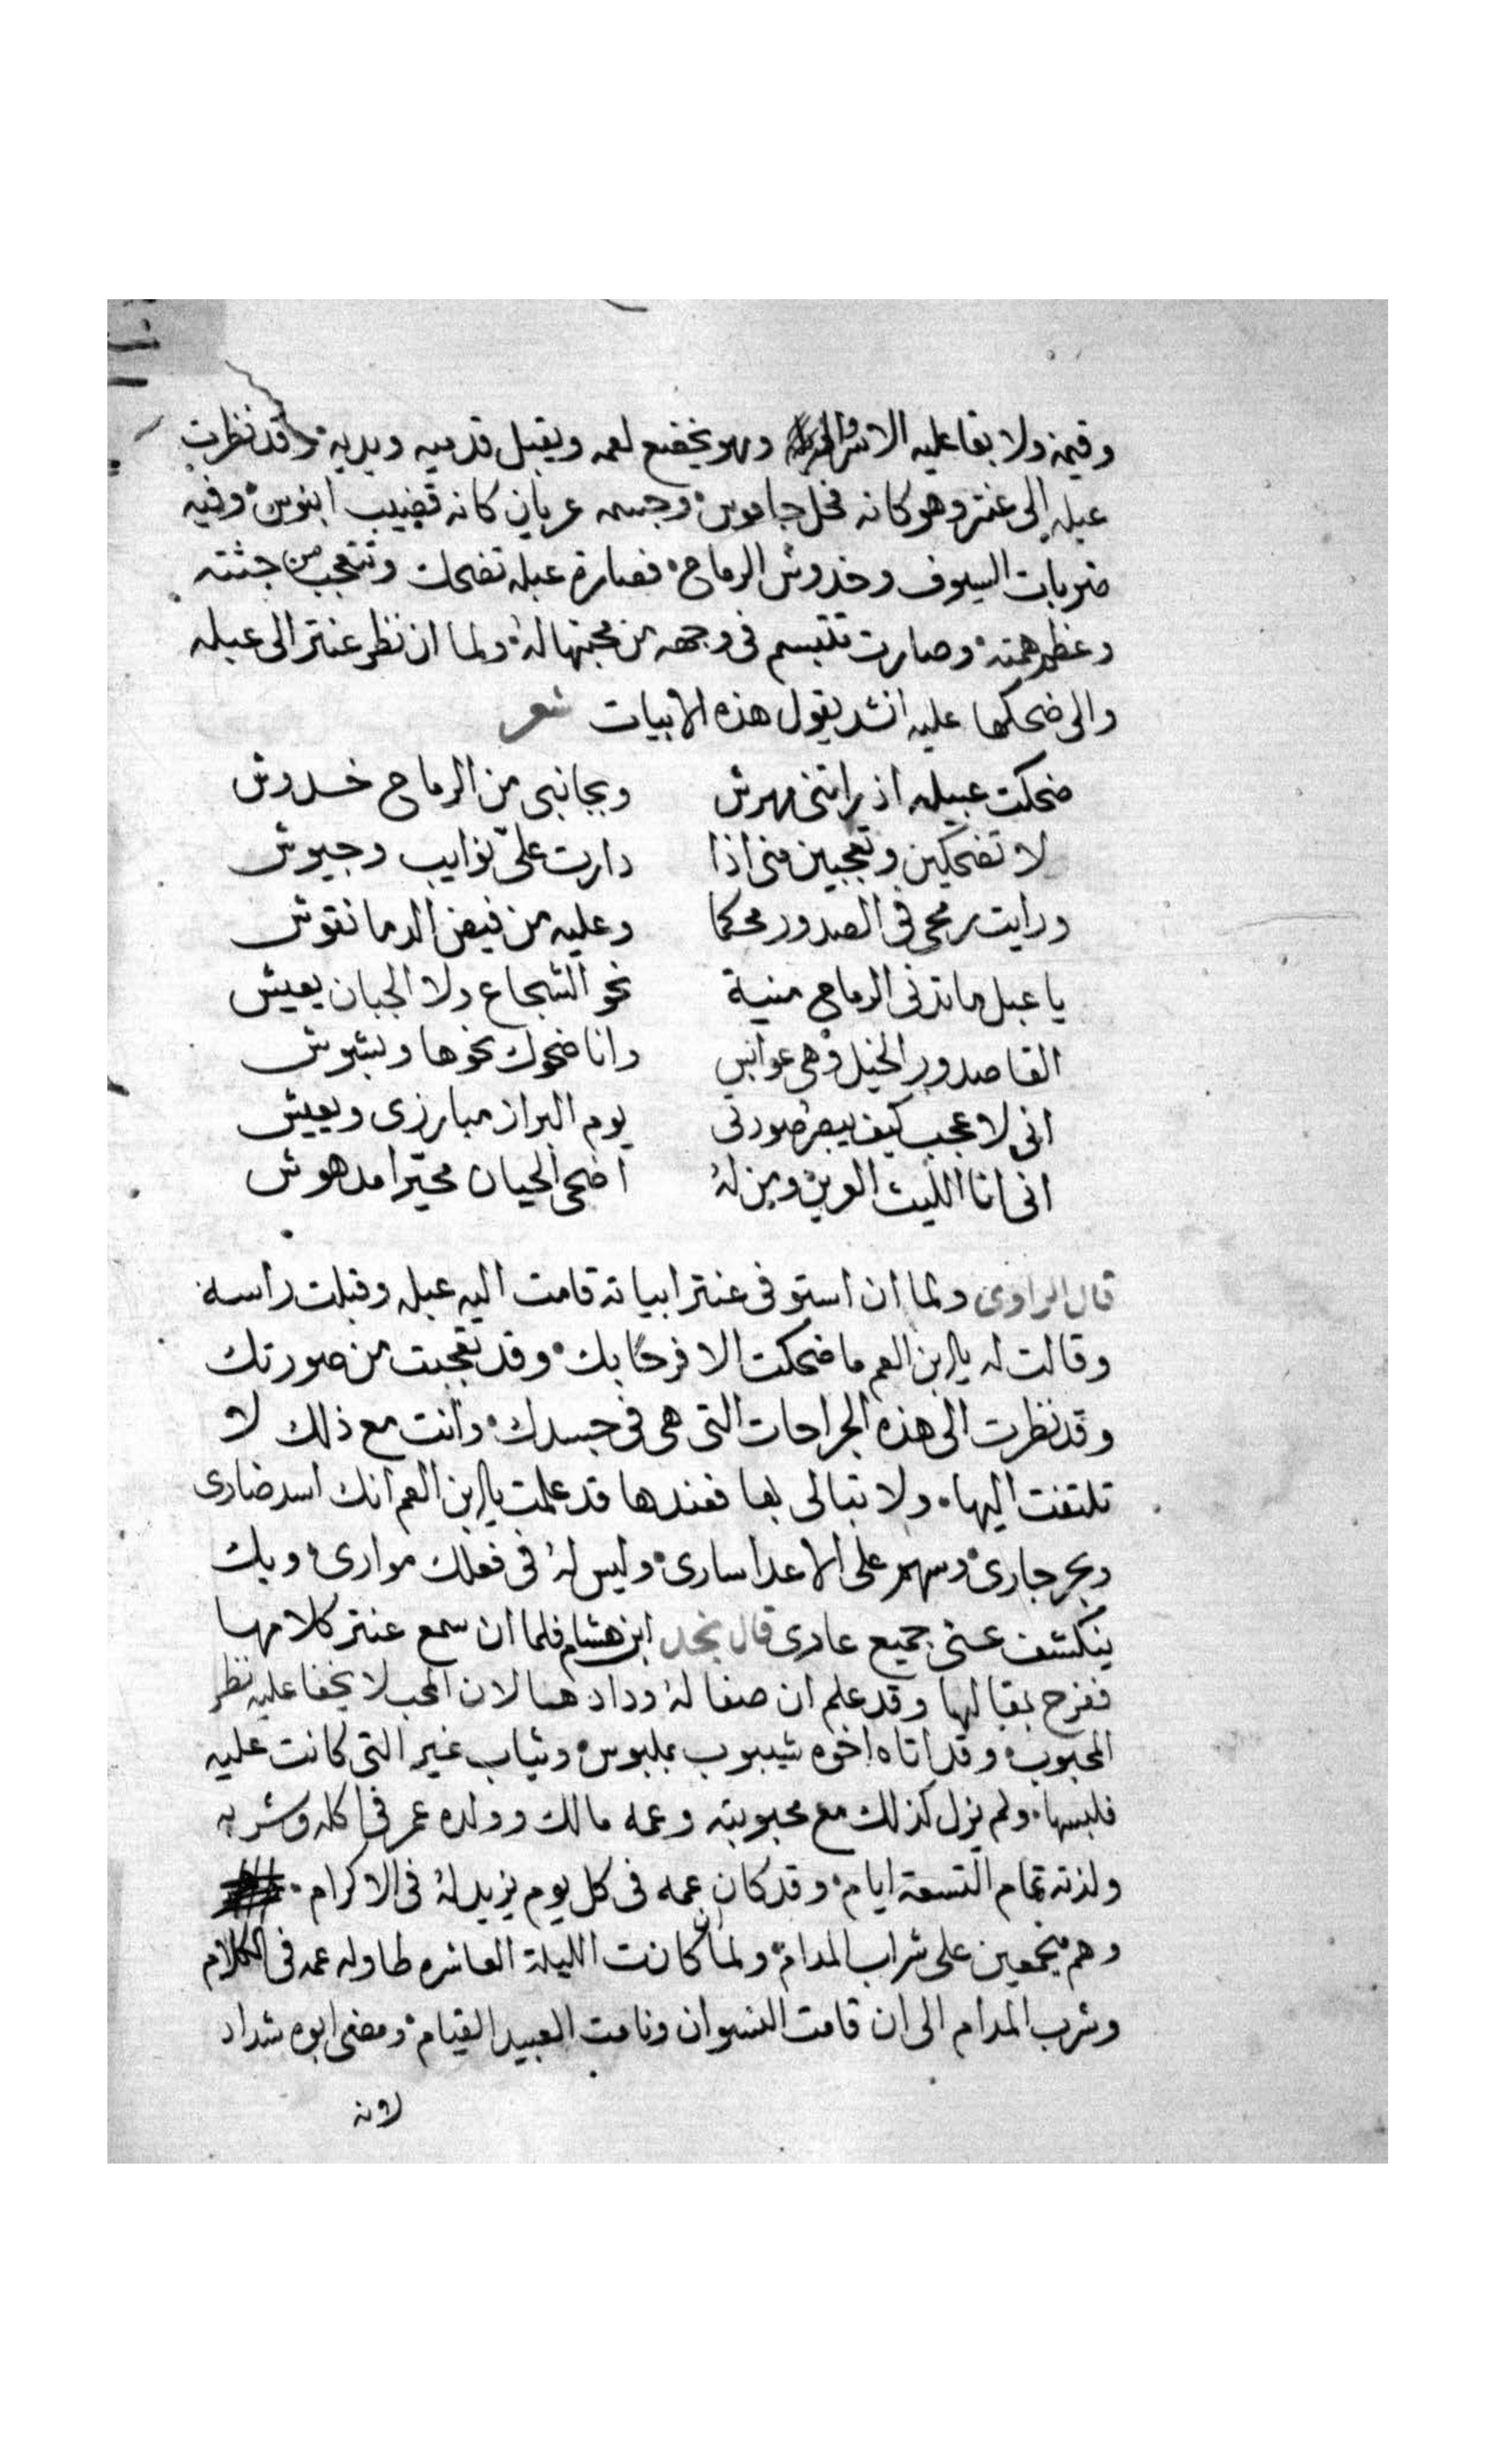 وقيمه ولا بقا عليه الا وهو يخضع لعمه ويقبل قدميه ويديه وقد نظرت
عبله الى عنتر وهو كانه فحل جاموس وجسمه عريان كانه قضيب ابنوس وفيه
ضربات السيوف وخدوش الرماح فصارة عبله تضحك وتتعجب من جثته
وعظم همته وصارت تتبسم فى وجهه من محبتها له ولما ان نظر عنتر الى عبله
والى ضحكها عليه انشد يقول هذه الابيات شعر
ضحكت عبيله اذ راتنى مهرش وبجانبى من الرماح خدوش
لا تضحكين وتعجبين منى اذا دارت علىّ نوايب وجيوش
ورايت رمحى فى الصدور محكما وعليه من فيض الدما نقوش
يا عبل ما تدنى الرماح منية نحو الشجاع ولا الجبان يعيش
القا صدور الخيل وهى عوابس وانا ضحوك نحوها وبشوش
انى لا عجب كيف يبصر صورتى يوم البراز مبارزى ويعيش
انى انا الليث العرين ومن له اضحى الجبان محيّرا مدهوش
قال الراوى ولما ان استوفى عنتر ابياته قامت اليه عبله وقبلت راسه
وقالت له يا ابن العم ما ضحكت الا فرحًا بك وقد تعجبت من صورتك
وقد نظرت الى هذه الجراحات التى هى فى جسدك وانت مع ذلك لا
تلتفت اليها ولا تبالى بها فعندها قد علمت يا ابن العم انك اسد ضارى
وبحر جارى وسهم على الاعدا سارى وليس له فى فعلك موارى وبك
ينكشف عنى جميع عارى قال نجد ابن هشام فلما ان سمع عنتر كلامها
ففرح بمقالها وقد علم ان صفا له ودادها لان المحب لا يخفا عليه نظر
المحبوب وقد اتاه اخوه شيبوب بملبوس وثياب غير التى كانت عليه
فلبسها ولم يزل كذلك مع محبوبته وعمه مالك وولده عمر فى اكله وشربه
ولذته تمام التسعة ايام وقد كان عمه فى كل يوم يزيد له فى الاكرام
وهم مجتمعين على شراب المدام ولما ان كانت الليلة العاشره طاوله عمه فى الكلام
وشرب المدام الى ان قامت النسوان ونامت العبيد القيام ومضى ابوه شداد
لانه